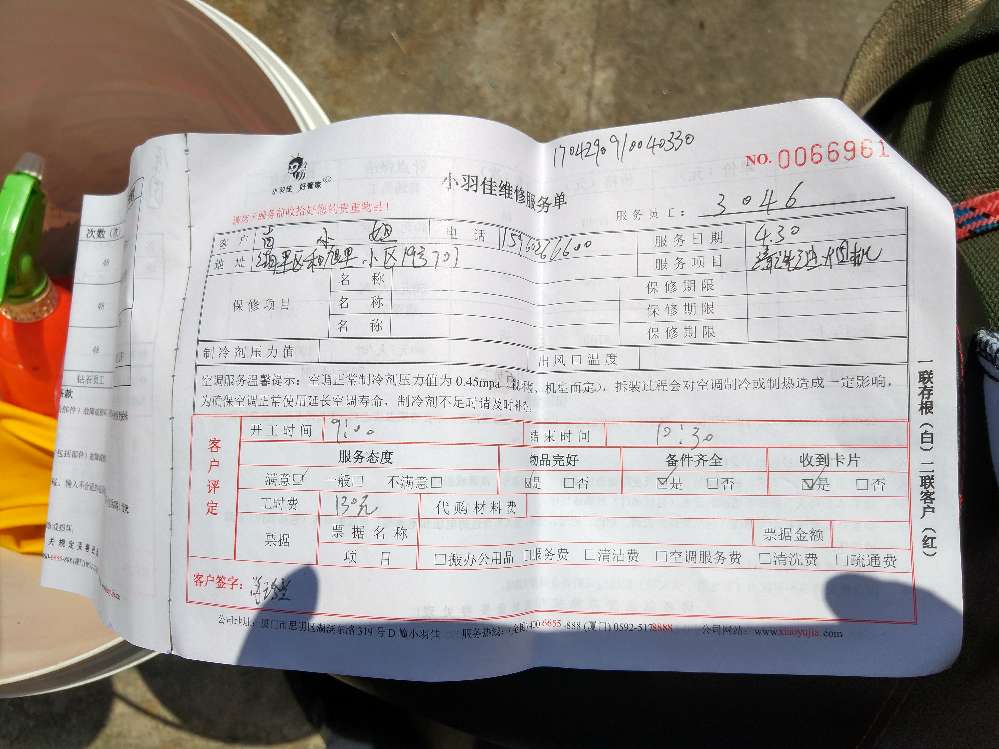 1704290910040330
NO. 0066961
小羽佳 好管家
小羽佳维修服务单
服务员工: 3046
请您在服务前收拾好您的贵重物品!
客户 小姐 电话 服务日期 4.30
地址 服务项目 清洗油烟机
保修项目 名称 保修期限
名称 保修期限
名称 保修期限
制冷剂压力值 出风口温度
空调服务温馨提示: 空调正常制冷剂压力值为0.45mpa 机型而定), 拆装过程会对空调制冷或制热造成一定影响,
为确保空调正常使用延长空调寿命, 制冷剂不足时请及时补
客户评定
开工时间 9:00 结束时间 10:30
服务态度 物品完好 备件齐全 收到卡片
满意□ 一般□ 不满意□ ☑是 □否 ☑是 □否 ☑是 □否
工时费 130元 代购材料费
票据 票据名称 票据金额
项目 □搬办公用品 □服务费 □清洁费 □空调服务费 □清洗费 □疏通费
客户签字:
公司地址: 厦门市思明区湖滨东路319号D 小羽佳 服务热线: 全国400-6655-888 (厦门) 0592-5178888 公司网站: www.xiaoyujia.com
一联存根(白)二联客户(红)
次数(次
钻石员工